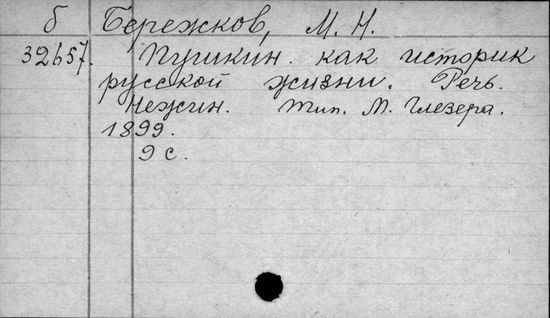 б Бережков, М. Н.
32657. Пушкин. как историк
русской жизни. Речь.
Нежин. Тип. М. Глезера.
1899.
9 с.